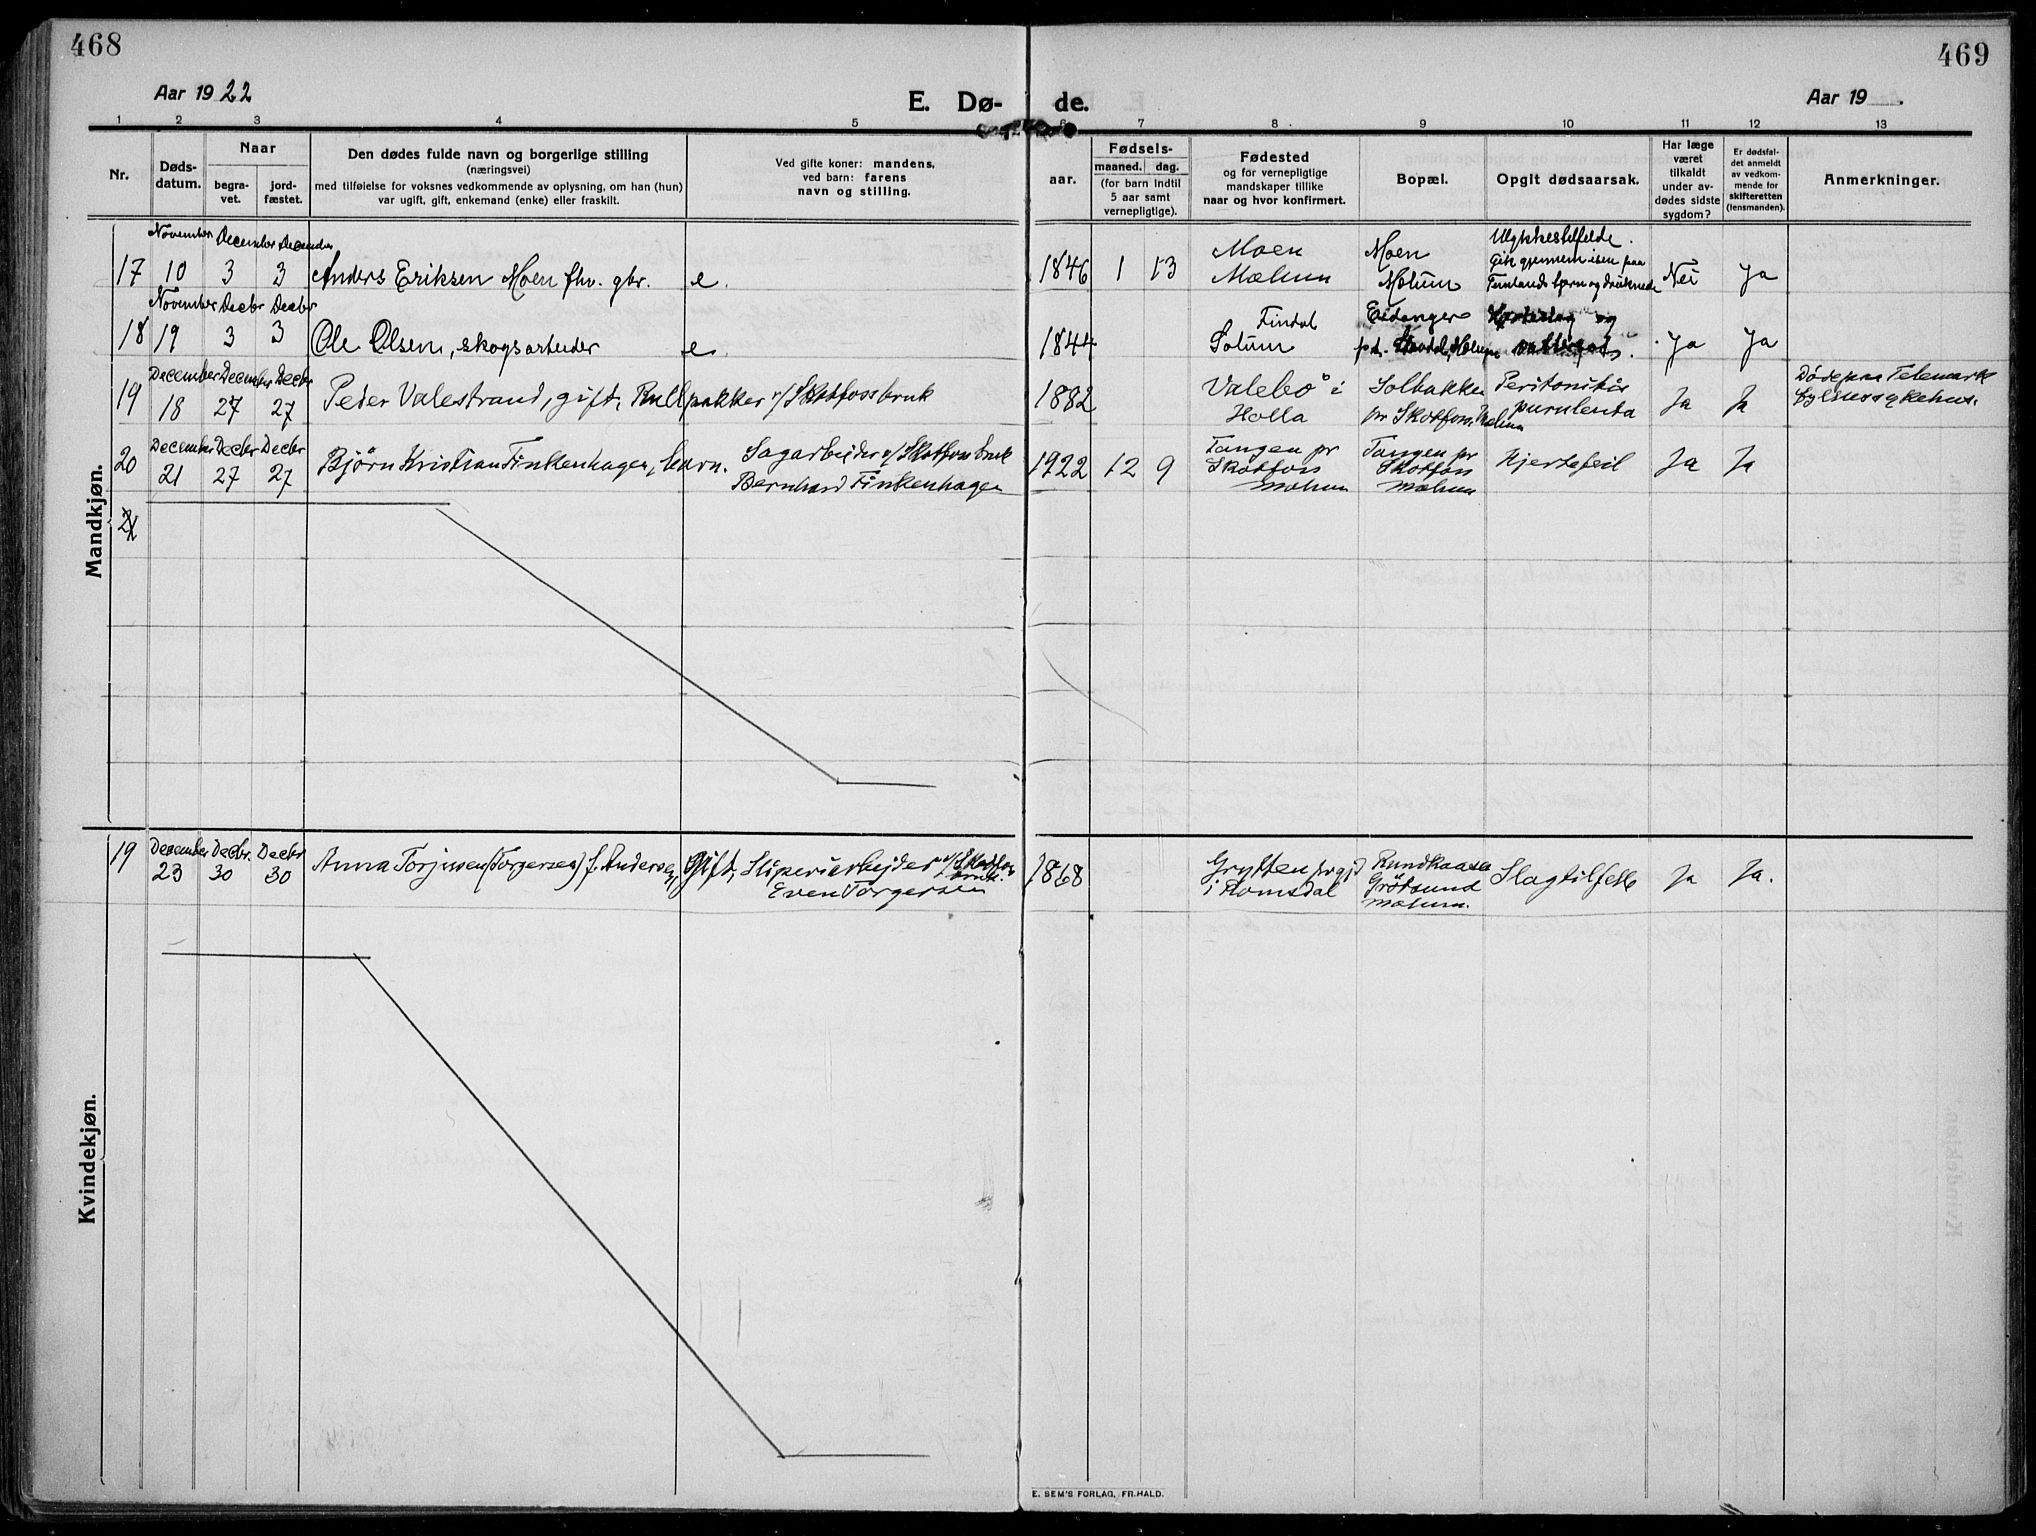 468
469
Aar 1922
E. Dø-
de.
Aar 19    .
1 2 3 4 5 6 7 8 9 10 11 12 13
Nr.
Døds-
datum.
Naar
begra-
vet.
jord-
fæstet.
Den dødes fulde navn og borgerlige stilling
(næringsvei)
med tilføielse for voksnes vedkommende av oplysning, om han (hun)
var ugift, gift, enkemand (enke) eller fraskilt.
Ved gifte koner: mandens,
ved barn: farens
navn og stilling.
aar.
Fødsels-
maaned. dag.
(for barn indtil
5 aar samt
vernepligtige).
Fødested
og for vernepligtige
mandskaper tillike
naar og hvor konfirmert.
Bopæl.
Opgit dødsaarsak.
Har læge
været
tilkaldt
under av-
dødes sidste
sygdom?
Er dødsfal-
det anmeldt
av vedkom-
mende for
skifteretten
(lensmanden).
Anmerkninger.
Mandkjøn.
November December December
17 10 3 3 Anders Eriksen Moen fhv. gbr. e. 1846 1 13
Moen
Mælum
Moen
Mælum
Ulykkestilfelde.
Gik gjennem isen paa
tjern og druknede
Nei Ja
November Decbr Decbr
18 19 3 3 Ole Olsen, skogsarbeider e. 1844
Findal
Solum
Eidanger
og
Ja Ja
December December Decbr
19 18 27 27 Peder Valestrand, gift, Rullpakker v/ Skotfossbruk 1882
Valebø i
Holla
Solbakken
pr Skotfoss, Mælum
Peritonitis
purulenta
Ja Ja
Døde paa Telemark
fylkessykehus.
December Decbr Decbr
20 21 27 27 Bjørn Kristian Finkenhagen, barn.
Sagarbeider v/ Skotfoss bruk
Bernhard Finkenhagen
1922 12 9
Tangen pr
Skotfoss
Mælum
Tangen pr
Skotfoss
Mælum
Hjertefeil
Ja Ja
21
Kvindekjøn.
December Decbr. Decbr
19 23 30 30 Anna Torjusen (Torgersen) f. Andersen
Gift, Sliperiarbejder v/ Skotfoss
bruk.
Even Torgersen
1868
Grytten prgj
i Romsdal
Rundkaasa
Grøtsund
Mælum.
Slagtilfelle
Ja Ja.
E. SEM'S FORLAG, FR.HALD.